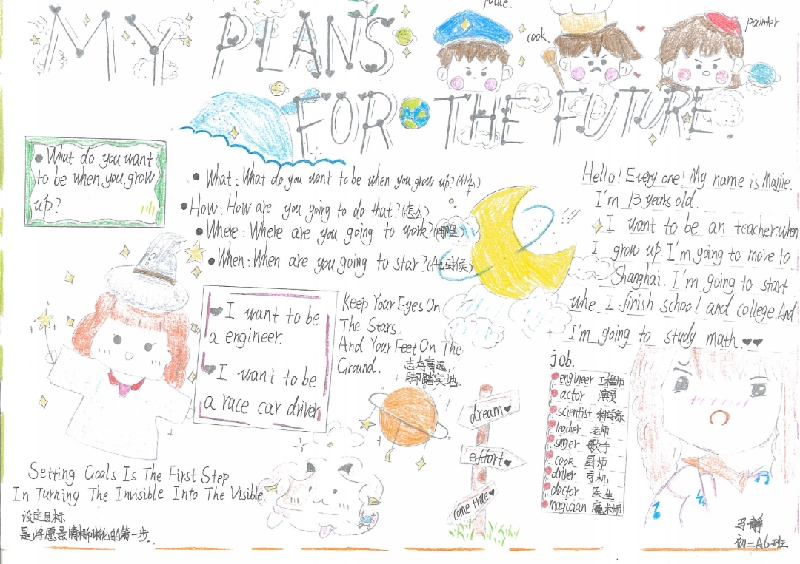 MY PLANS
FOR THE FUTURE
cook
painter
What do you want
to be when you grow
up?
What: What do you want to be when you grow up? (什么)
How: How are you going to do that? (怎么)
Where: Where are you going to work? (哪里)
When: When are you going to star? (什么时候)
Hello! Every one! My name is
I'm 13 years old.
I want to be an teacher when
I grow up I'm going to move to
Shanghai. I'm going to start
whe I finish school and college And
I'm going to study math.
I want to be
a engineer.
I want to be
a race car driver
Keep Your Eyes On
The Stars,
And Your Feet On The
Ground.
志存高远,
脚踏实地.
job.
engineer 工程师
actor 演员
scientist 科学家
teacher 老师
singer 歌手
cook 厨师
driver 司机
doctor 医生
magician 魔术师
dream
effort
come true
Setting Goals Is The First Step
In Turning The Invisible Into The Visible
设定目标
是 的第一步.
初二A6班